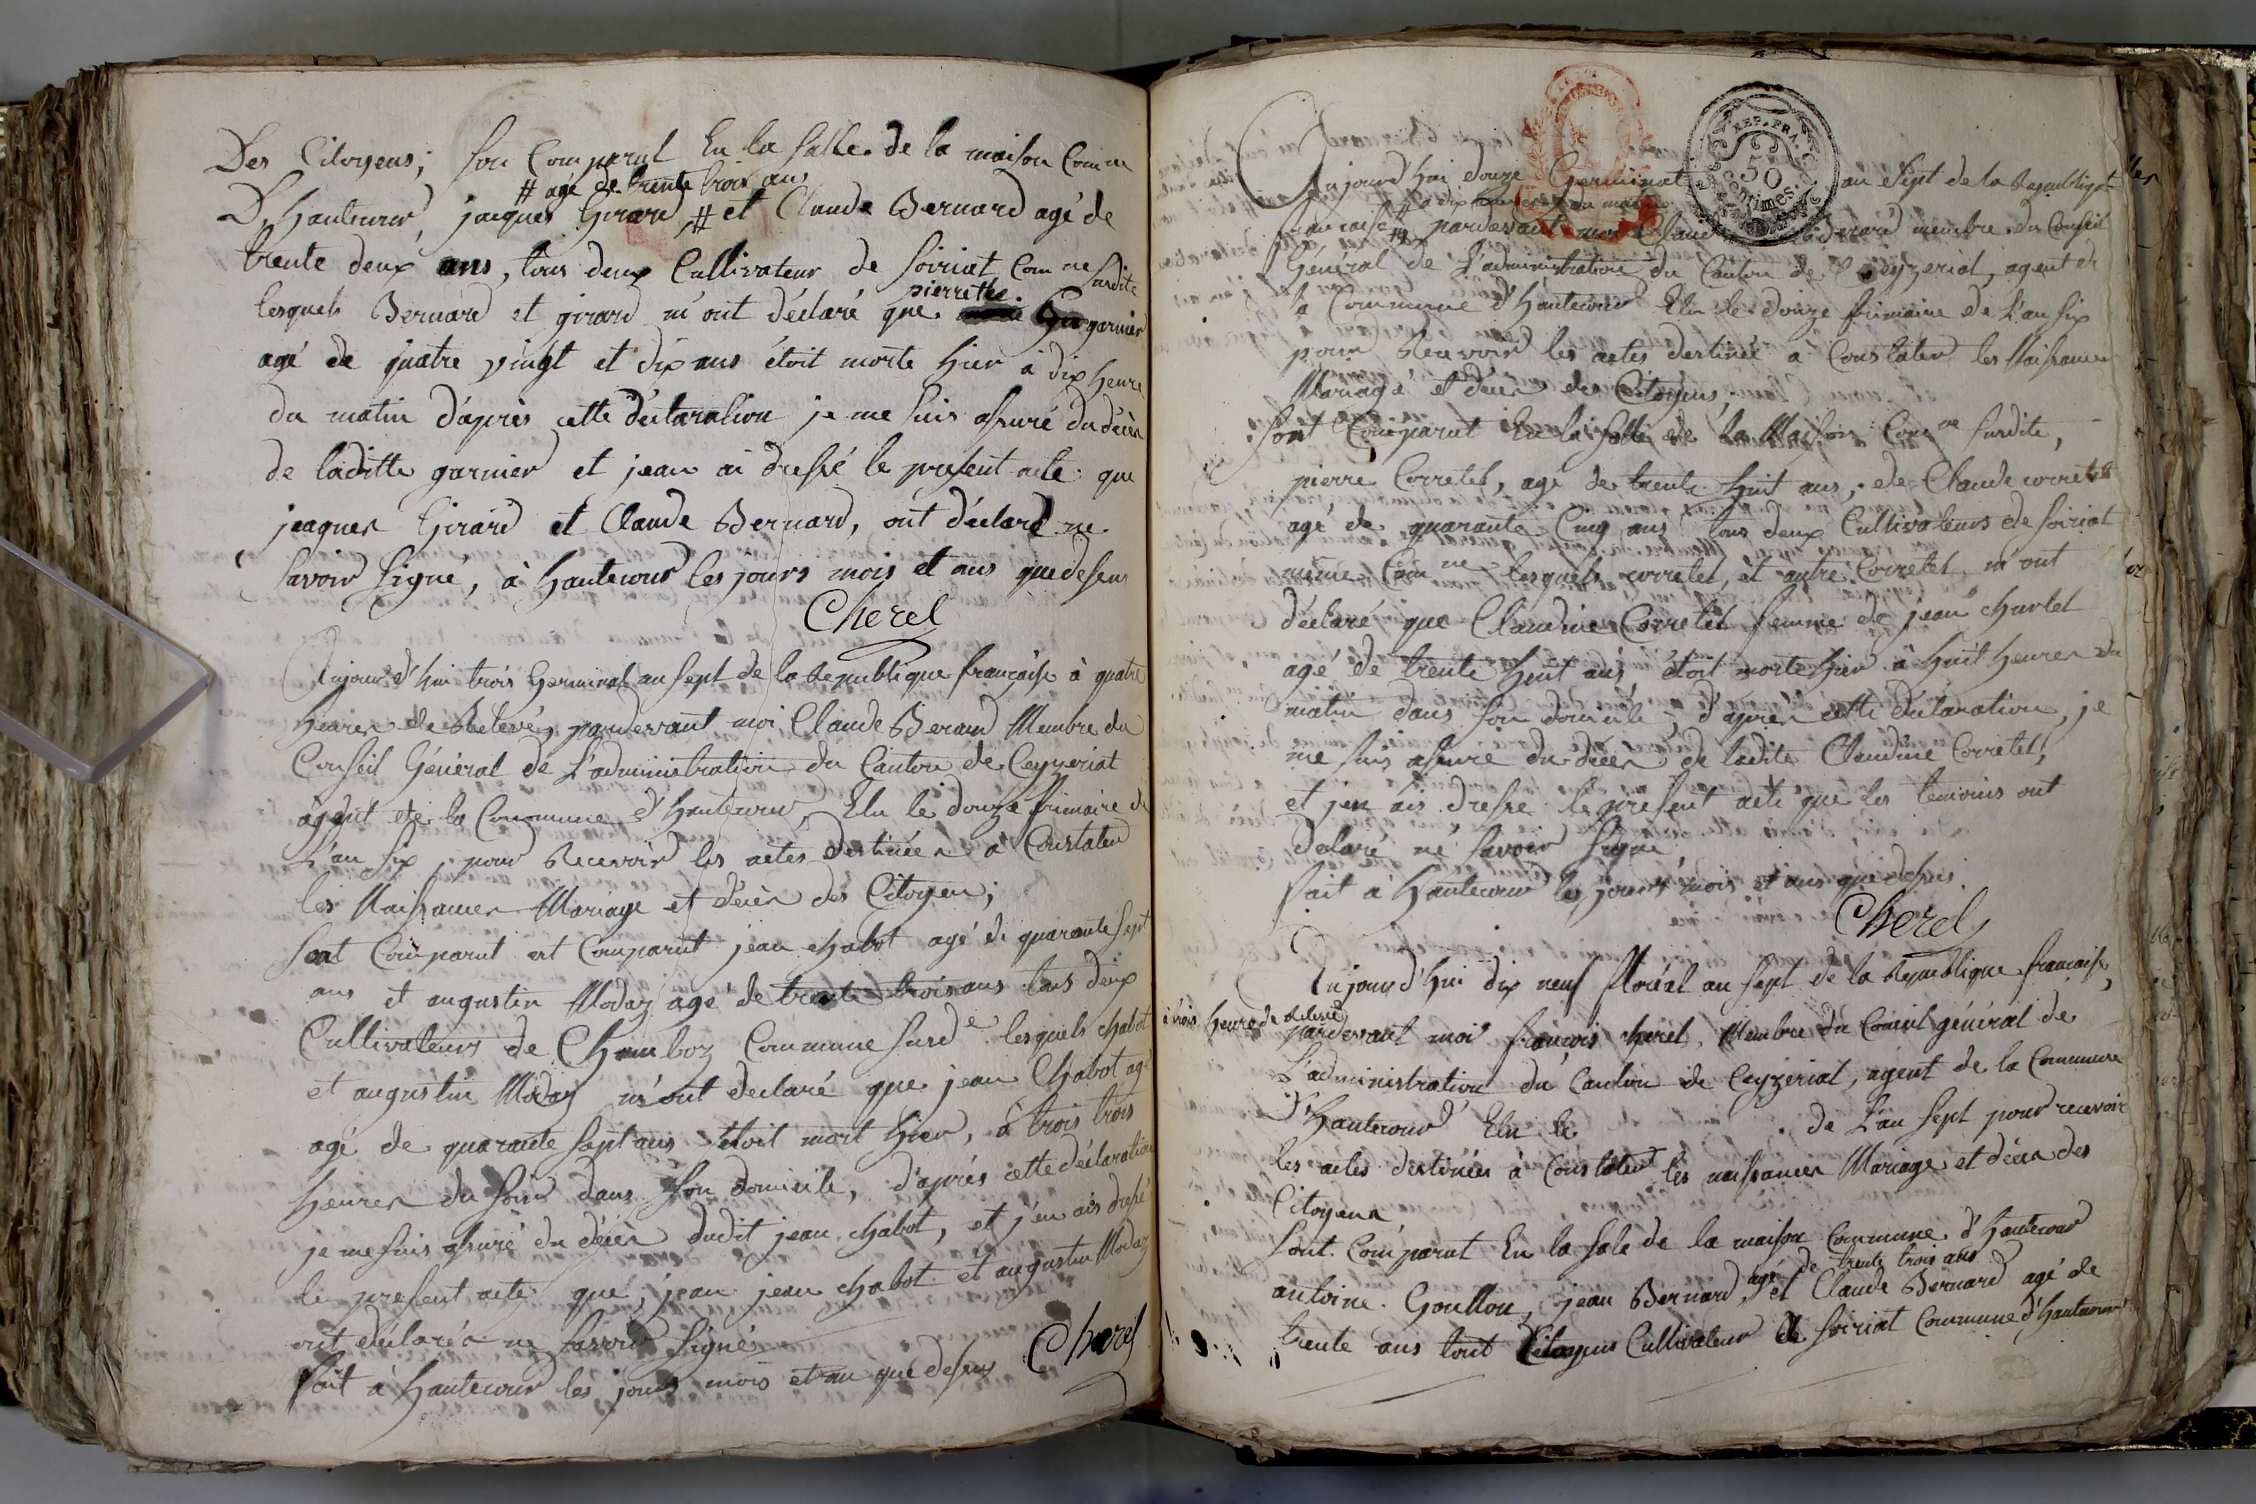 Des Citoyens; son Comparut En la salle de la maison Comm
# agé de trente trois ans
D'hautecour, jacques Girard, # et Claude Bernard agé de
trente deux ans, tous deux Cultivateur de soiriat Com ne susdite
pierrette
lesquels Bernard et girard m'ont déclaré que garnier
agé de quatre vingt et dix ans étoit morte hier à dix heure
du matin d'après cette déclaration je me suis assuré du décès
de laditte garnier et jean ai dressé le present acte que
jacques Girard et Claude Bernard, ont déclaré ne
savoir signé, à hautecour les jours mois et ans que desus
Cherel
Aujourd'hui trois Germinal an sept de la Republique française à quatre
heures de Relevé, pardevant moi Claude Berard Membre du
Conseil Général de L'administration du Canton de Ceyzeriat
agent de la Commune d'hautecour, Elu le douze frimaire de
L'an six, pour Recevoir les actes destinées à Constater
les Naissances Mariage et décès des Citoyen;
sont Comparut ert Comparut jean chabot agé de quarante sept
ans et augustin Modaz agé de trente trois ans tous deux
Cultivateurs de Chamboz Commune susde lesquels chabot
et augustin Modaz m'ont déclaré que jean Chabot agé
agé de quarante sept ans étoit mort hier, à trois trois
heures du soir dans son domicile, d'après cette déclaration
je me suis assuré du décès dudit jean chabot, et j'en ais dressé
le present acte que, jean jean chabot et augustin Modaz
ont déclarés ne savoir signés
fait à hautecour les jours mois et an que desus Cherel
REP. FRA.
50
centimes.
Aujourd'hui douze Germinal an sept de la Republique
# a dix heures du matin
française # pardevant moi Claude Berard membre du Conseil
Général de L'administration du Canton de Ceyzeriat, agent de
la Commune d'hautecour Elu le douze frimaire de L'an six
pour Recevoir les actes destinée à Constater les Naissances
Mariage et décès des Citoyens,
sont Comparut En la salle de la Maison Com ne susdite,
pierre Corretel, agé de trente huit ans, de Claude corretel
agé de quarante Cinq ans tous deux Cultivateurs de soiriat
même Com ne lesquels corretel, et autre Corretel m'ont
déclaré que Claudine Corretel femme de jean charlet
agé de trente huit ans étoit morte hier à huit heures du
matin dans son domicile, d'après cette déclaration, je
me suis assuré du décès de ladite Claudine Corretel,
et j'en ais dressé le présent acte que les temoins ont
déclaré ne savoir signé
fait à hautecour les jours mois et ans que desus
Cherel
Aujourd'hui dix neuf floréal an sept de la Republique française,
à trois heure de relevé
pardevant moi françois cherel, Membre du Conseil général de
L'administration du Canton de Ceyzeriat, agent de la Commune
D'hautecour Elu le de L'an sept pour recevoir
les actes destinées à Constater les naissances Mariage et décès des
Citoyens
sont Comparut En la sale de la maison Commune d'hautecour
agé de trente trois ans
antoine Goullon, jean Bernard, et Claude Bernard agé de
trente ans tout Citoyens Cultivateur de soiriat Commune d'hautecour